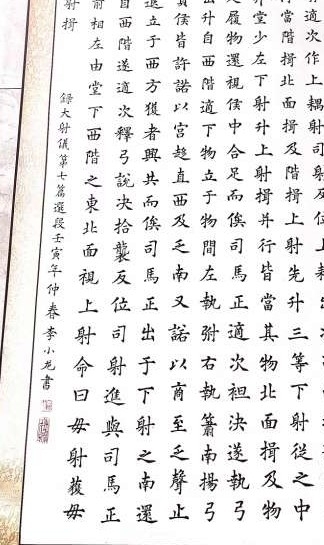 適次作上耦射司射反位上耦出
行當階揖北面揖及階揖上射先升三等下射從之中
升堂少左下射升上射揖并行皆當其物北面揖及物
履物還視侯中合足而俟司馬正適次袒決遂執弓
出升自西階適下物立于物間左執弣右執簫南揚弓
負侯皆許諾以宮趨直西及乏南又諾以商至乏聲止
退立于西方獲者興共而俟司馬正出于下射之南還
自西階遂適次釋弓說決拾襲反位司射進與司馬正
前相左由堂下西階之東北面視上射命曰毋射獲毋
射揖
錄大射儀第七篇選段壬寅年仲春李小龙書